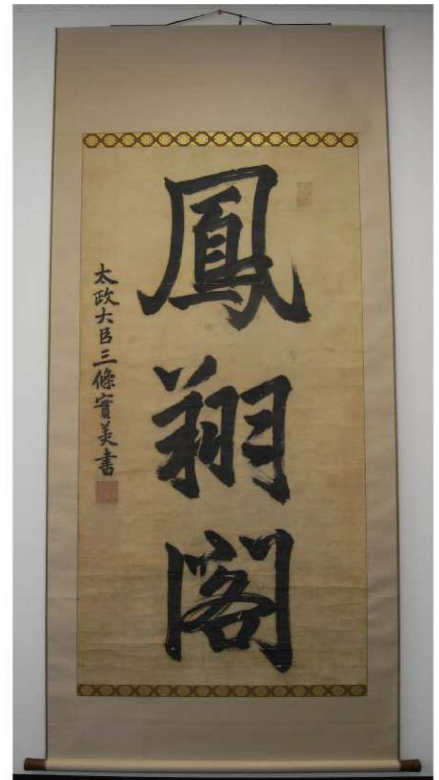 鳳翔閣
太政大臣三條實美書